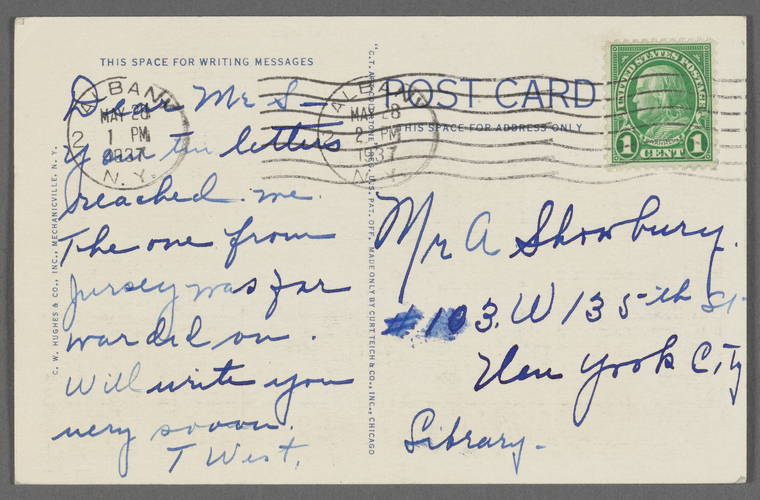 THIS SPACE FOR WRITING MESSAGES
POST CARD
THIS SPACE FOR ADDRESS ONLY
UNITED STATES POSTAGE
FRANKLIN
1 CENT 1
ALBANY
2
MAY 28
1 PM
1937
N.Y.
ALBANY
2
MAY 28
2 PM
1937
N.Y.
Dear Mr S—
your ten letters
reached me.
The one from
Jersey was far
warded on.
Will write you
very sooon.
T West.
C. W. HUGHES & CO., INC., MECHANICVILLE, N. Y.
"C.T. ART-COLORTONE" REG. U.S. PAT. OFF. MADE ONLY BY CURT TEICH & CO., INC., CHICAGO
Mr A Showbury.
#103. W 135-ith St-
New York City
Library-